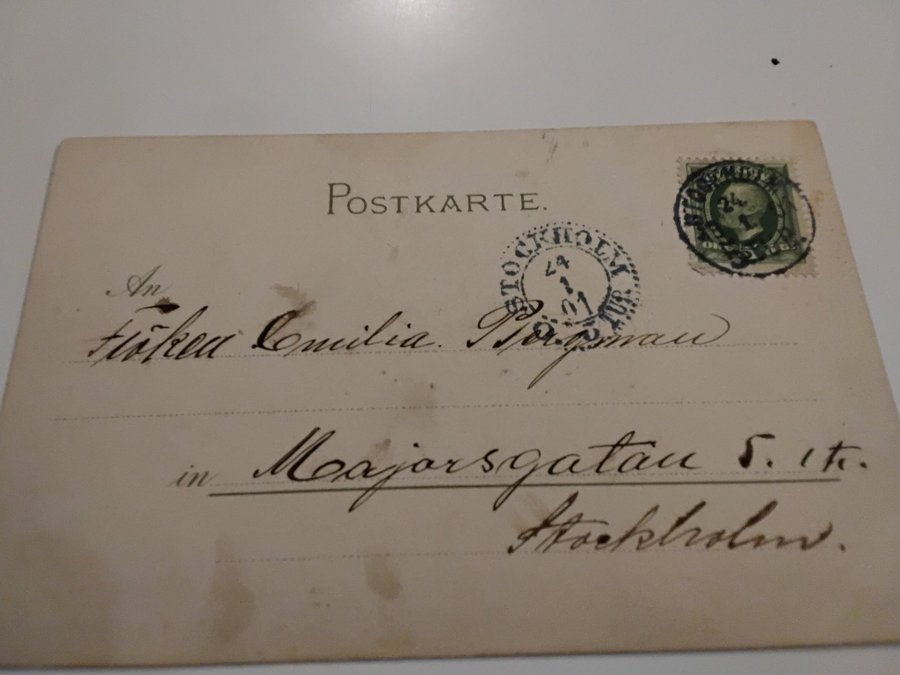 POSTKARTE.
STOCKHOLM
24
1
01
STOCKHOLM
24
1
An
Fröken Emilia Borgman
in Majorsgatan 5. 1 tr.
Stockholm.